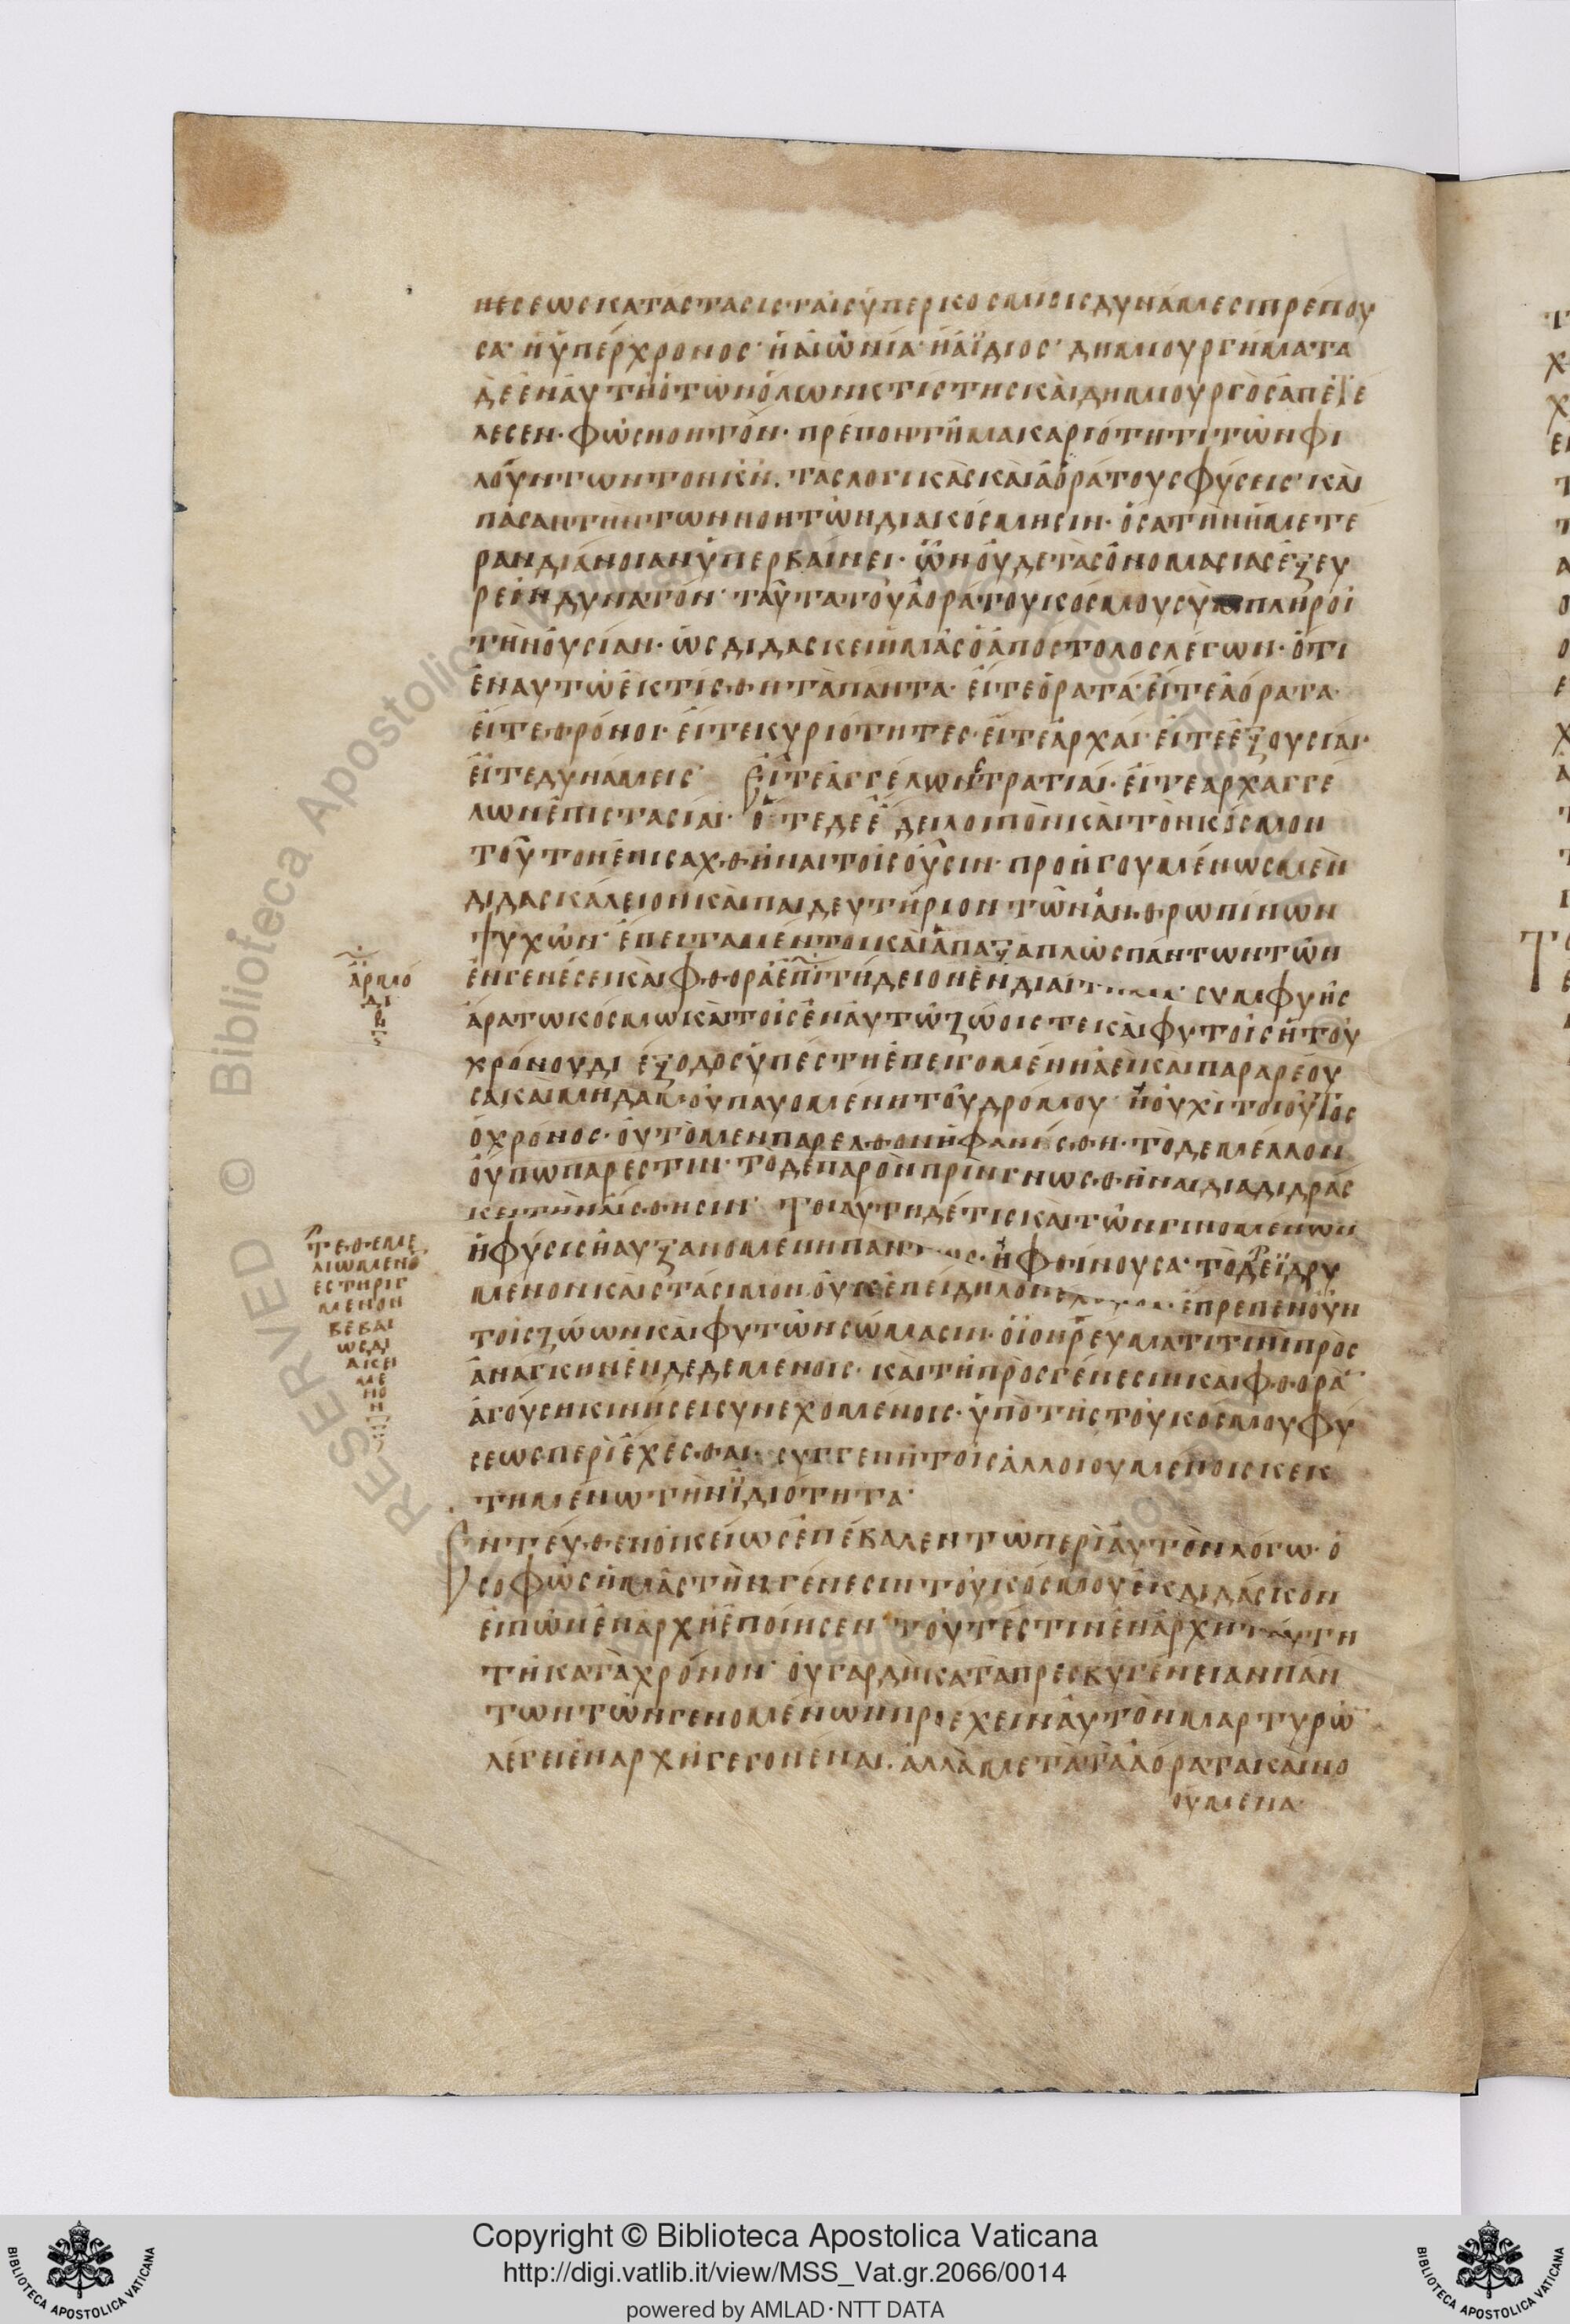 νεσεως κατάστασις ταῖς ὑπερκοσμίοις δυνάμεσι πρέπου
σα· ἡ ὑπέρχρονος· ἡ αἰωνία· ἡ ἀΐδιος· δημιουργήματα
δὲ ἐν αὐτῇ ὁ τῶν ὅλων κτίστης καὶ δημιουργὸς ἀπετέ
λεσεν· φῶς νοητόν· πρέπον τῇ μακαριότητι τῶν φι
λούντων τὸν κ̅ν̅· τὰς λογικὰς καὶ ἀοράτους φύσεις· καὶ
πᾶσαν τὴν τῶν νοητῶν διακόσμησιν· ὅσα τὴν ἡμετέ
ραν διάνοιαν ὑπερβαίνει· ὧν οὐδὲ τὰς ὀνομασίας ἐξευ
ρεῖν δυνατόν· ταῦτα τοῦ ἀοράτου κόσμου συμπληροῖ
τὴν οὐσίαν· ὡς διδάσκει ἡμᾶς ὁ ἀπόστολος λέγων· ὅτι
ἐν αὐτῷ ἐκτίσθη τὰ πάντα· εἴτε ὁρατά· εἴτε ἀόρατα·
εἴτε θρόνοι· εἴτε κυριότητες· εἴτε ἀρχαί· εἴτε ἐξουσίαι·
εἴτε δυνάμεις· εἴτε ἀγγέλων στρατιαί· εἴτε ἀρχαγγέ
λων ἐπιστασίαι· ὅτε δὲ ἔδει λοιπὸν καὶ τὸν κόσμον
τοῦτον ἐπισαχθῆναι τοῖς οὖσιν· προηγουμένως μὲν
διδασκαλεῖον καὶ παιδευτήριον τῶν ἀνθρωπίνων
ψυχῶν· ἔπειτα μέντοι καὶ ἅπαξ ἁπλῶς πάντων τῶν
ἐν γενέσει καὶ φθορᾷ ἐπιτήδειον ἐνδιαίτημα· συμφυὴς
ἄρα τῷ κόσμῳ καὶ τοῖς ἐν αὐτῷ ζώοις τε καὶ φυτοῖς ἡ τοῦ
χρόνου διέξοδος ὑπέστη ἐπειγομένη ἀεὶ καὶ παραρέου
σα καὶ μηδαμοῦ παυομένη τοῦ δρόμου· ἢ οὐχὶ τοιοῦτος
ὁ χρόνος· οὗ τὸ μὲν παρελθὸν ἠφανίσθη· τὸ δὲ μέλλον
οὔπω πάρεστιν· τὸ δὲ παρὸν πρὶν γνωσθῆναι διαδιδράσ
κει τὴν αἴσθησιν· τοιαύτη δέ τις καὶ τῶν γινομένων
ἡ φύσις ἢ αὐξανομένη πάντως· ἢ φθίνουσα· τὸ δὲ ἱδρυ
μένον καὶ στάσιμον οὐκ ἐπίδηλον ἔχουσα· ἔπρεπεν οὖν
τοῖς ζώων καὶ φυτῶν σώμασιν· οἱονεὶ ῥεύματί τινι πρὸς
ἀνάγκην ἐνδεδεμένοις· καὶ τῇ πρὸς γένεσιν καὶ φθορὰν
ἀγούσῃ κινήσει συνεχομένοις· ὑπὸ τῆς τοῦ κόσμου φύ
σεως περιέχεσθαι συγγενῆ τοῖς ἀλλοιουμένοις κεκ
τημένῳ τὴν ἰδιότητα·
Ἐντεῦθεν οἰκείως ἐπέβαλεν τῷ περὶ αὐτοῦ λόγῳ· ὁ
σοφῶς ἡμᾶς τὴν γένεσιν τοῦ κόσμου ἐκδιδάσκων
εἰπὼν ἐν ἀρχῇ ἐποίησεν· τουτέστιν ἐν ἀρχῇ ταύτῃ
τῇ κατὰ χρόνον· οὐ γὰρ δὴ κατὰ πρεσβυγένειαν πάν
των τῶν γενομένων προέχειν αὐτὸν μαρτυρῶν
λέγει ἐν ἀρχῇ γεγονέναι· ἀλλὰ μετὰ τὰ ἀόρατα καὶ νο
ούμενα·
ἁρμό
δι
ον
τεθεμε
λιωμένον
ἐστηριγ
μένον
βεβαί
ως δι
ακεί
με
νο
ν
Copyright © Biblioteca Apostolica Vaticana
http://digi.vatlib.it/view/MSS_Vat.gr.2066/0014
powered by AMLAD·NTT DATA
BIBLIOTECA APOSTOLICA VATICANA
BIBLIOTECA APOSTOLICA VATICANA